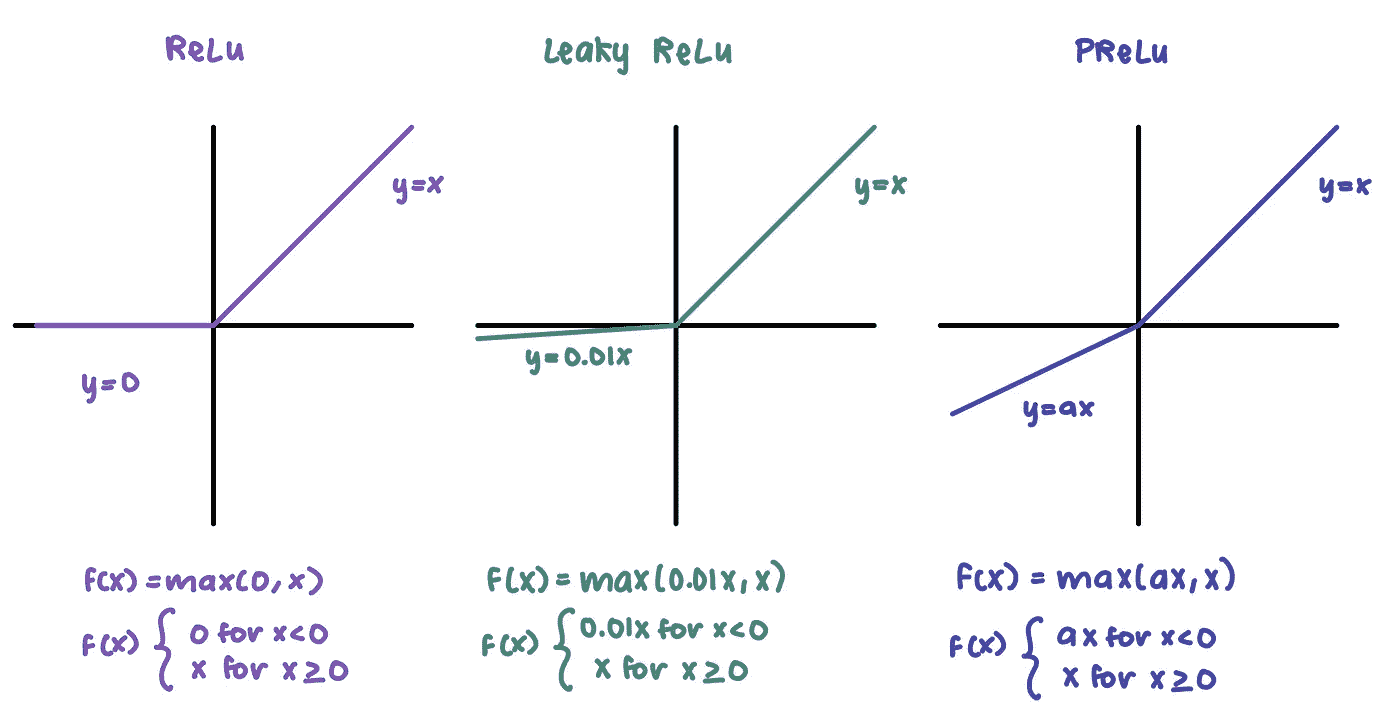 ReLu
y=x
y=0
F(x) = max(0, x)
F(x) { 0 for x<0
x for x≥0
Leaky ReLu
y=x
y=0.01x
F(x) = max(0.01x, x)
F(x) { 0.01x for x<0
x for x≥0
PReLu
y=x
y=ax
F(x) = max(ax, x)
F(x) { ax for x<0
x for x≥0